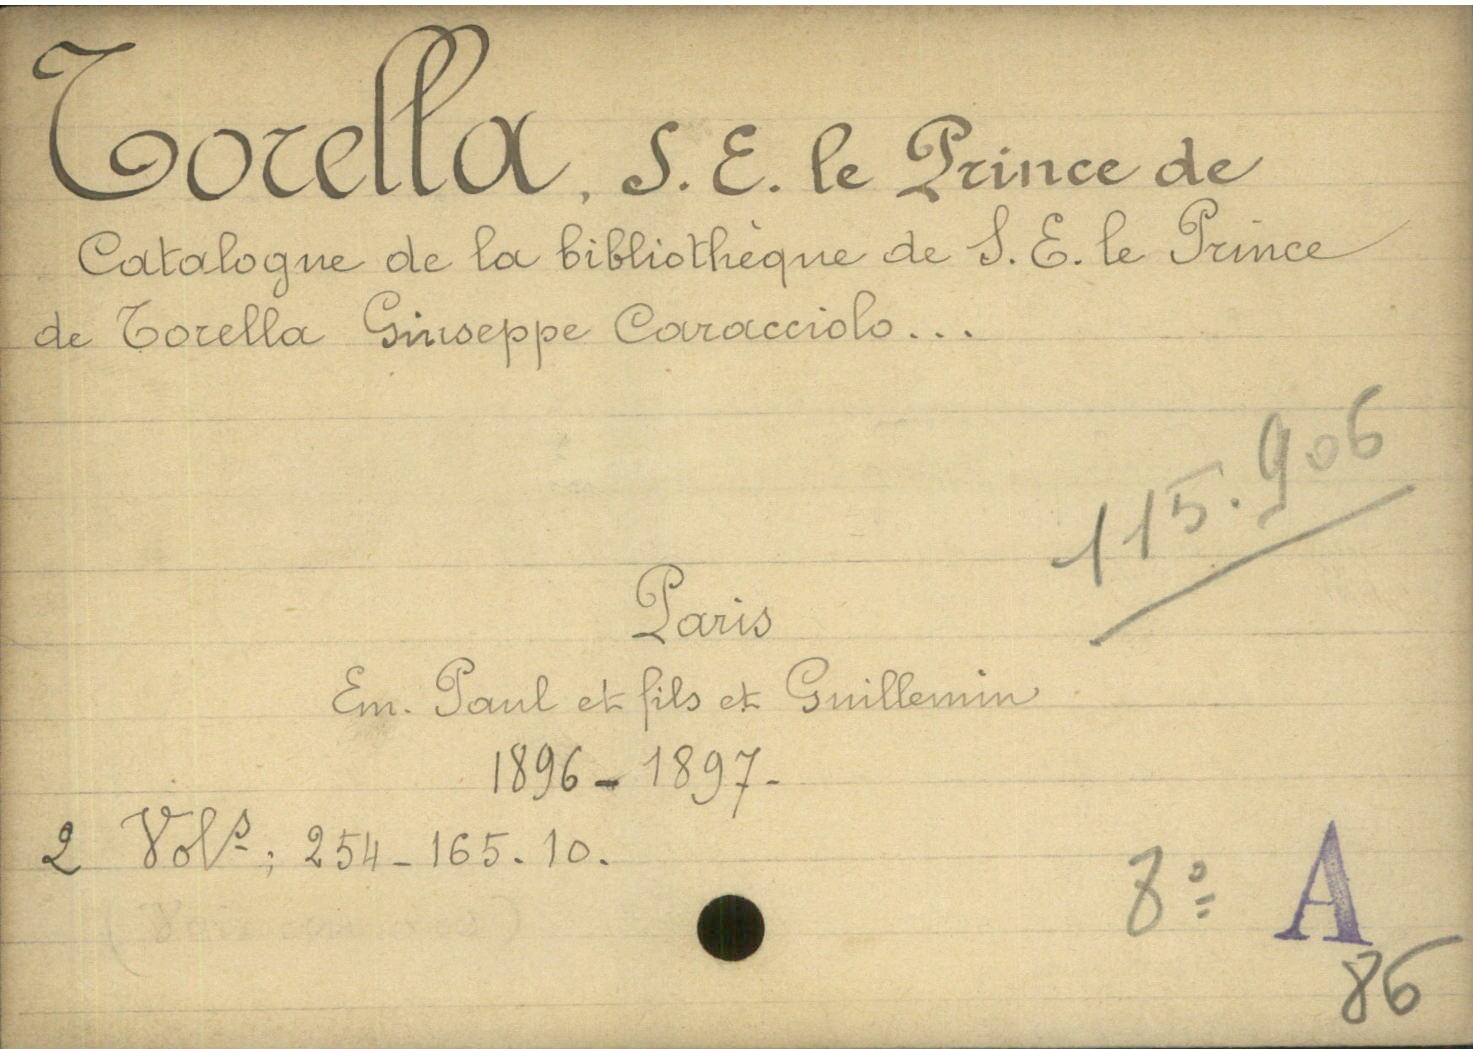 Torella, S. E. le Prince de
Catalogue de la bibliothèque de S. E. le Prince
de Torella Giuseppe Caracciolo...
115.906
Paris
Em. Paul et fils et Guillemin
1896-1897-
2 Vols; 254-165.10.
8º A
86